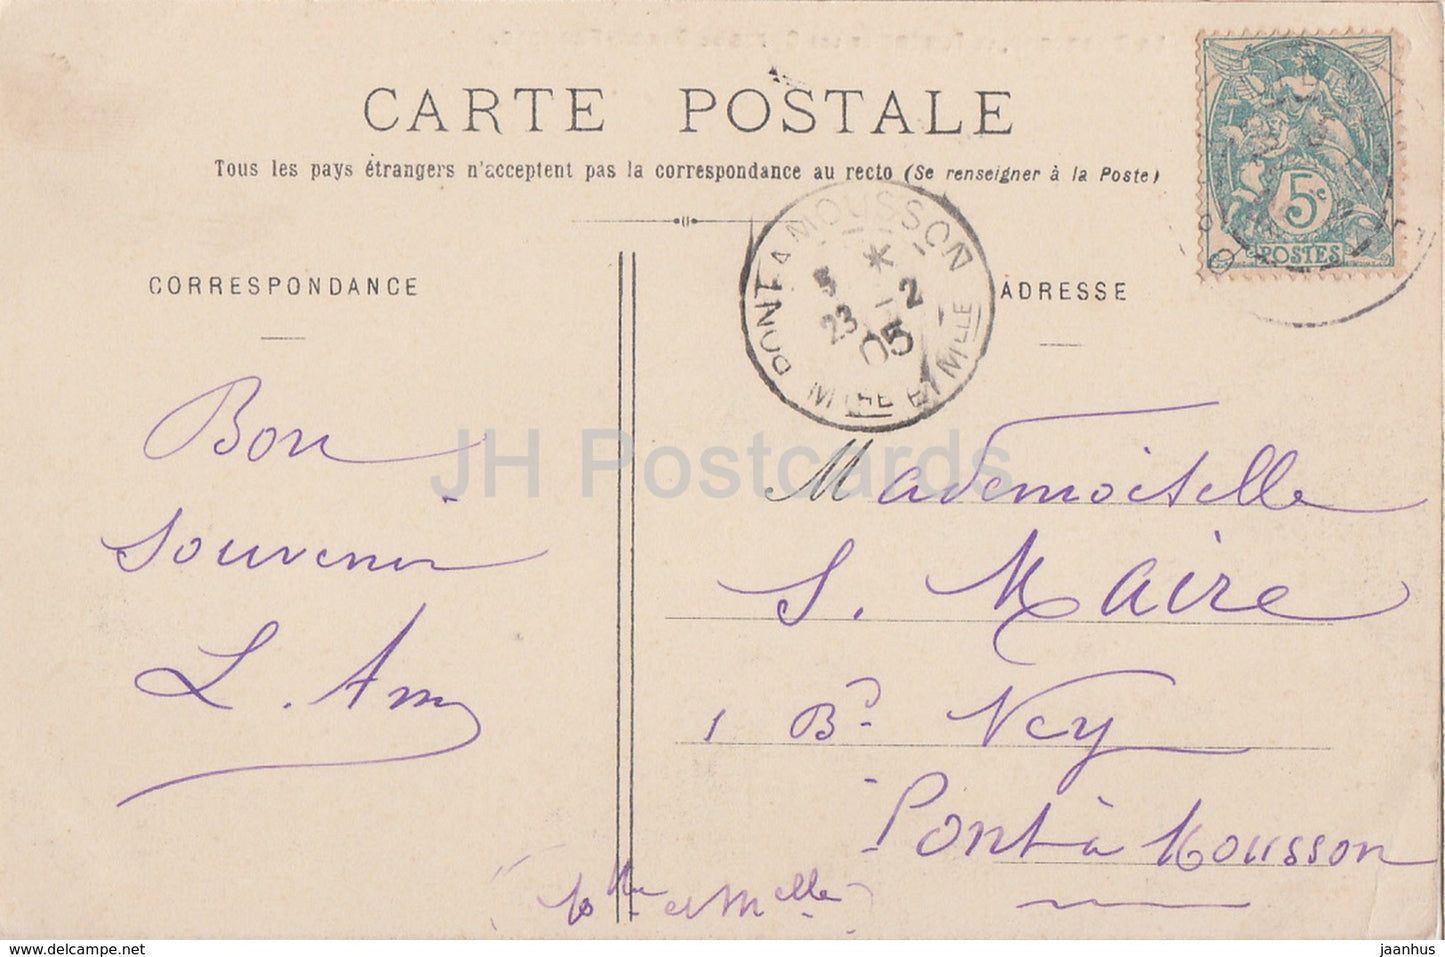 CARTE POSTALE
Tous les pays étrangers n'acceptent pas la correspondance au recto (Se renseigner à la Poste)
5c
POSTES
PONT A MOUSSON
5 * 2
23 - 05
MTHE ET MLLE
CORRESPONDANCE
ADRESSE
Bon
souvenir
L. Am
Mademoiselle
S. Maire
1 Bd Ney
Pont à Mousson
et Mselle
JH Postcards
hipostcard.com
jaanhus